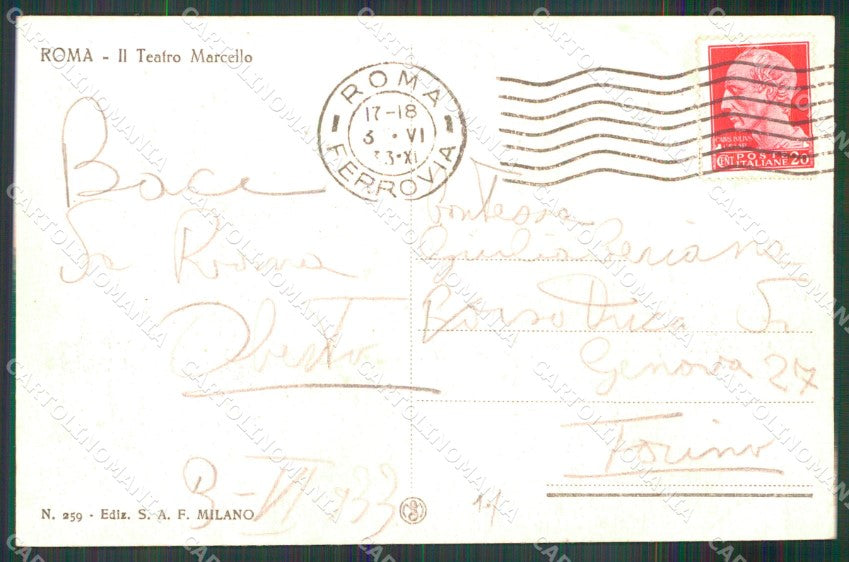 ROMA - Il Teatro Marcello
ROMA
17-18
3 • VI
33•XI
FERROVIA
POSTE
CENT ITALIANE 20
Baci
Da Roma
Oberto
3-VI 933
Contessa
Giulia
Corso Duca Di
Genova 27
Torino
N. 259 - Ediz. S. A. F. MILANO
14
CARTOLINOMANIA